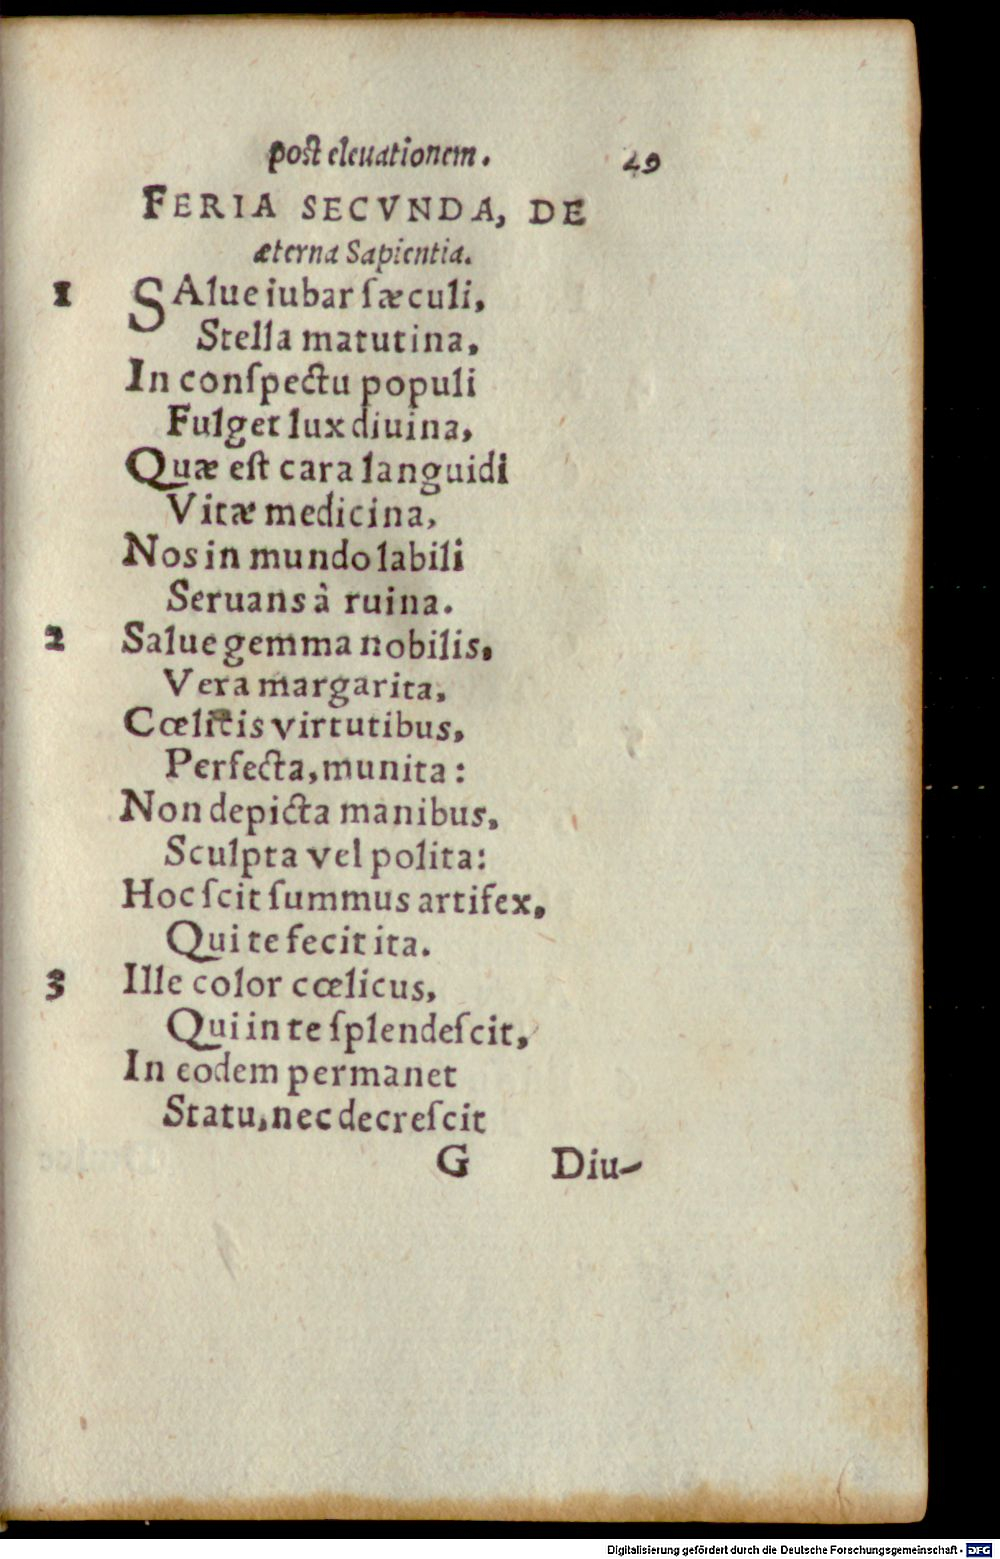 post eleuationem. 49
FERIA SECVNDA, DE
æterna Sapientia.
1 SAlue iubar ſæculi,
Stella matutina,
In conſpectu populi
Fulget lux diuina,
Quæ est cara languidi
Vitæ medicina,
Nos in mundo labili
Seruans à ruina.
2 Salue gemma nobilis,
Vera margarita,
Cœlitis virtutibus,
Perfecta, munita:
Non depicta manibus,
Sculpta vel polita:
Hoc ſcit ſummus artifex,
Qui te fecit ita.
3 Ille color cœlicus,
Qui in te ſplendeſcit,
In eodem permanet
Statu, nec decreſcit
G Diu-
Digitalisierung gefördert durch die Deutsche Forschungsgemeinschaft - DFG